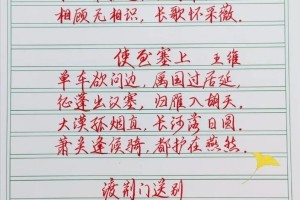 相顾无相识，长歌怀采薇。
使至塞上 王维
单车欲问边，属国过居延。
征蓬出汉塞，归雁入胡天。
大漠孤烟直，长河落日圆。
萧关逢候骑，都护在燕然。
渡荆门送别